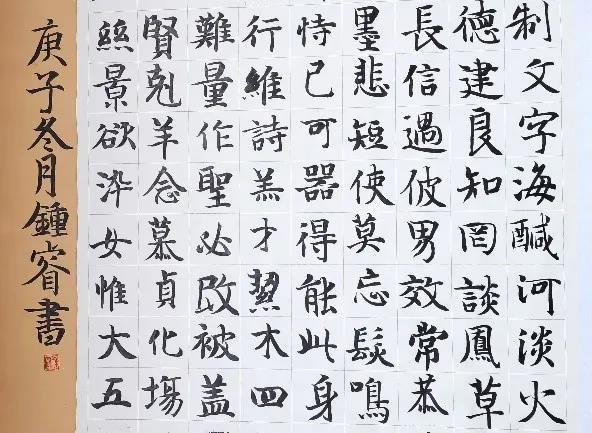 制文字海鹹河淡火
德建良知罔談鳳草
長信過彼男效常恭
墨悲短使莫忘髮鳴
恃己可器得能此身
行維詩羔才絜木四
難量作聖必改被蓋
賢剋羊念慕貞化場
絲景欲染女惟大五
庚子冬月鍾睿書